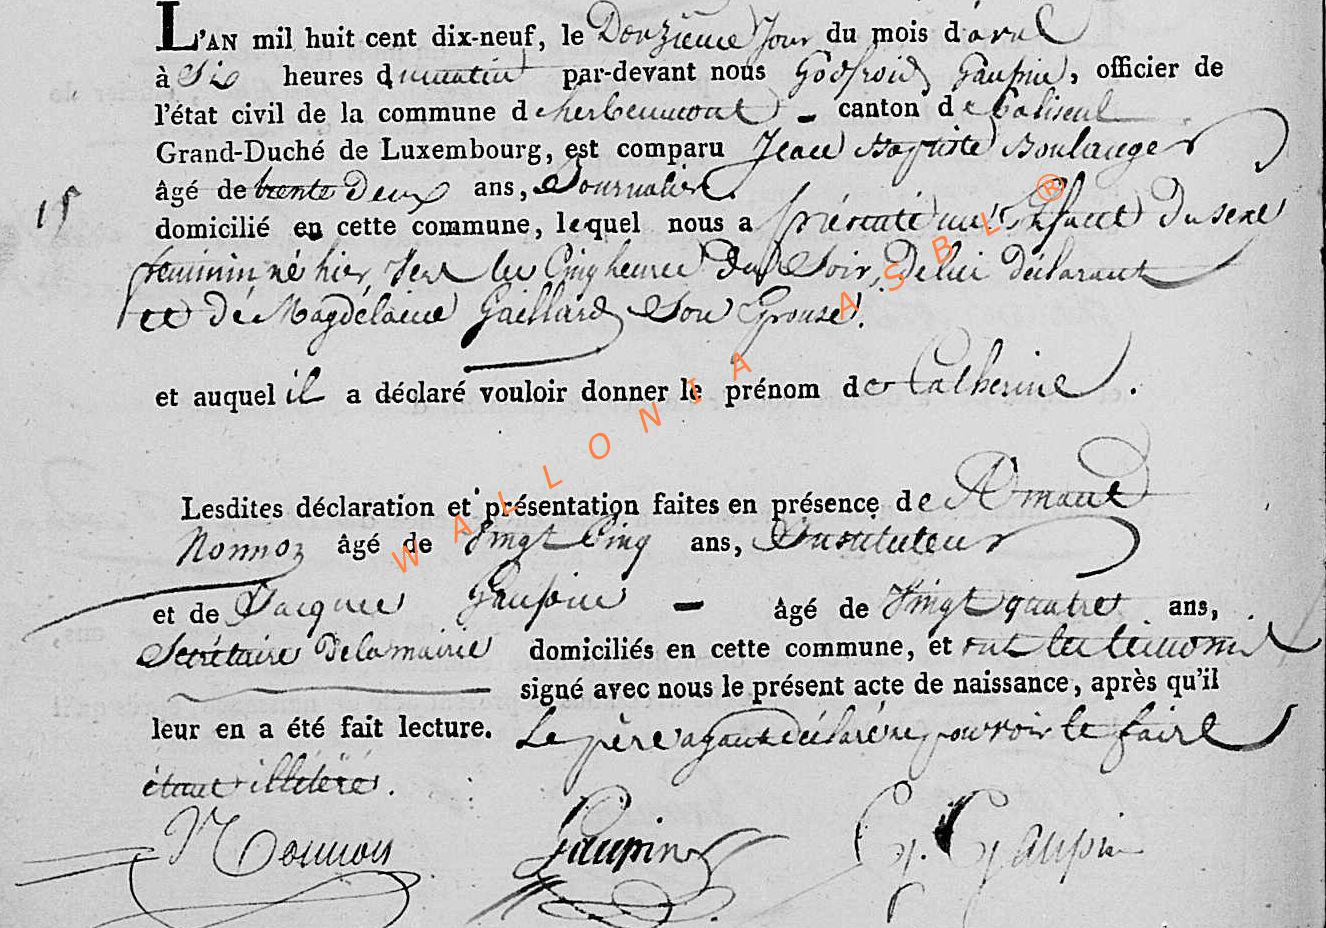 L'AN mil huit cent dix-neuf, le Douzieme Jour du mois d'avril
à Six heures du matin par-devant nous Godfroid Gaupin, officier de
l'état civil de la commune d'herbeumont - canton de
Grand-Duché de Luxembourg, est comparu Jean Baptiste Boulanger
âgé de trente Deux ans, Journalier.
15
domicilié en cette commune, lequel nous a présenté un Enfant Du sexe
feminin, né hier, vers les Cinq heures Du Soir, De lui déclarant
et De Magdelaine Gaillard Son Epouse.
et auquel il a déclaré vouloir donner le prénom de Catherine.
Lesdites déclaration et présentation faites en présence de Armand
Nonnoz âgé de Vingt Cinq ans, Instituteur
et de Jacques Gaupin - âgé de Vingt quatre ans,
Secrétaire De la mairie domiciliés en cette commune, et ont les témoins
signé avec nous le présent acte de naissance, après qu'il
leur en a été fait lecture. Le père ayant déclaré ne pouvoir le faire
étant illétéré.
Nonnois Gaupin G. Gaupin
WALLONIA ASBL ®